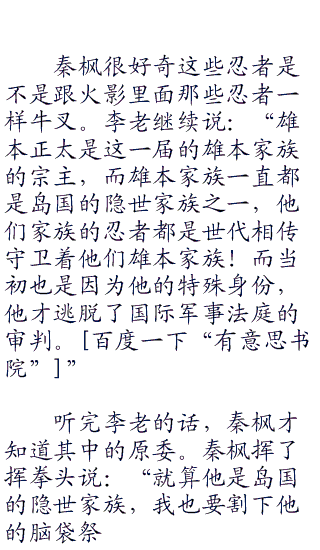 秦枫很好奇这些忍者是
不是跟火影里面那些忍者一
样牛叉。李老继续说：“雄
本正太是这一届的雄本家族
的宗主，而雄本家族一直都
是岛国的隐世家族之一，他
们家族的忍者都是世代相传
守卫着他们雄本家族！而当
初也是因为他的特殊身份，
他才逃脱了国际军事法庭的
审判。[百度一下“有意思书
院”]”
听完李老的话，秦枫才
知道其中的原委。秦枫挥了
挥拳头说：“就算他是岛国
的隐世家族，我也要割下他
的脑袋祭